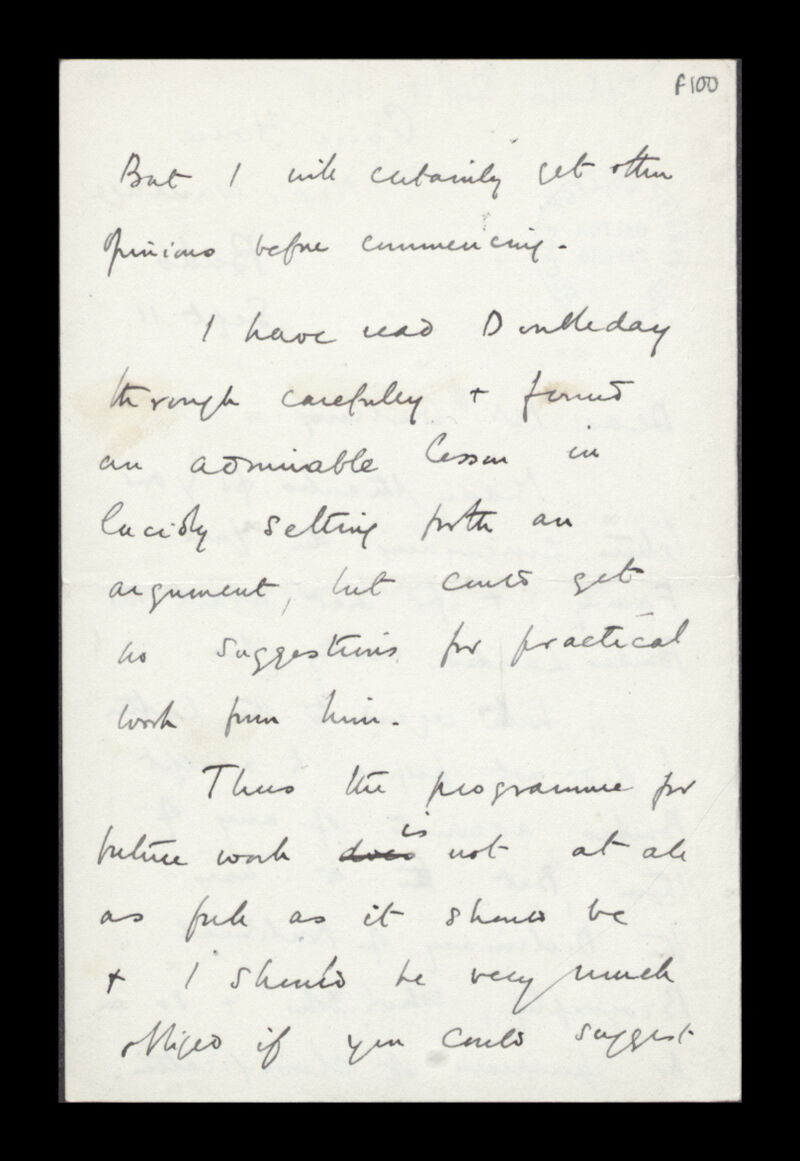 f100
But I will certainly get other
opinions before commencing.
I have read Doubleday
through carefully + found
an admirable lesson in
lucidly setting forth an
argument, but could get
no suggestions for practical
work from him.
Thus the programme for
is
future work does not at all
as full as it should be
+ I should be very much
obliged if you could suggest